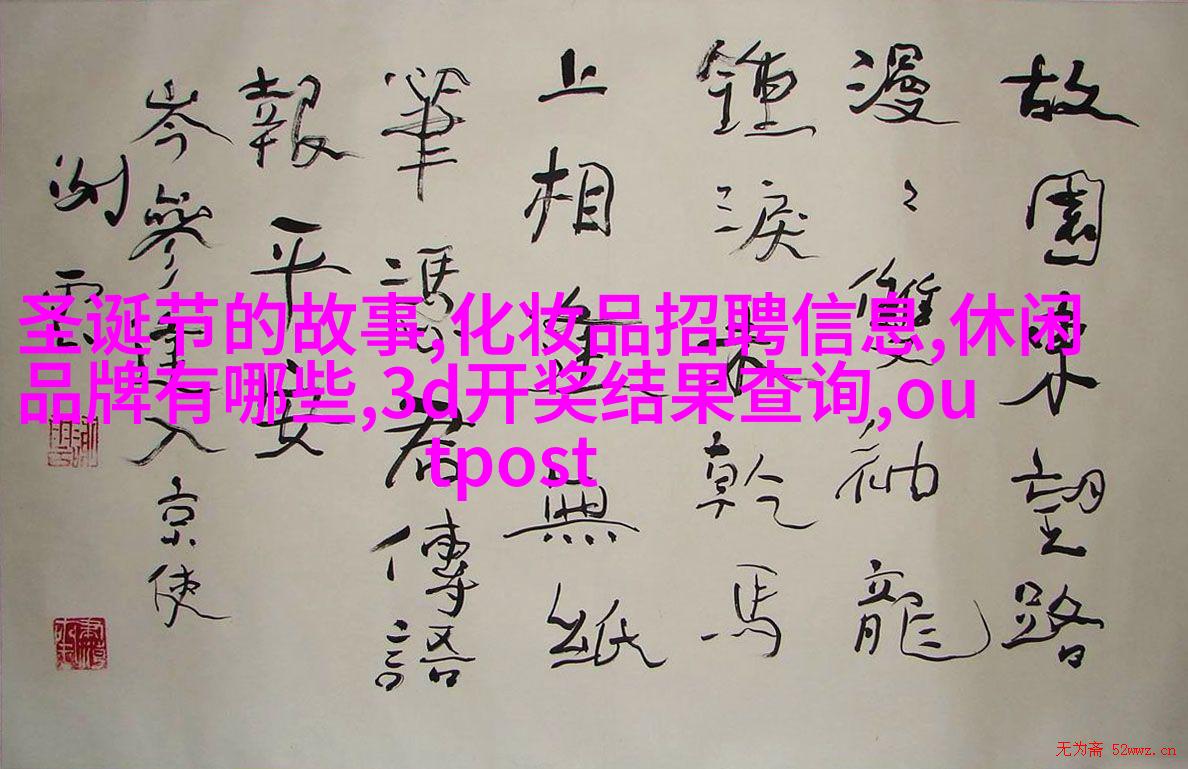 故園東望路
漫〻雙袖龍
鍾淚未乾馬
上相逢無紙
筆憑君傳語
報平安
岑參逢入京使
圣诞节的故事,化妆品招聘信息,休闲
品牌有哪些,3d开奖结果查询,ou
tpost
无为斋 52wwz.cn